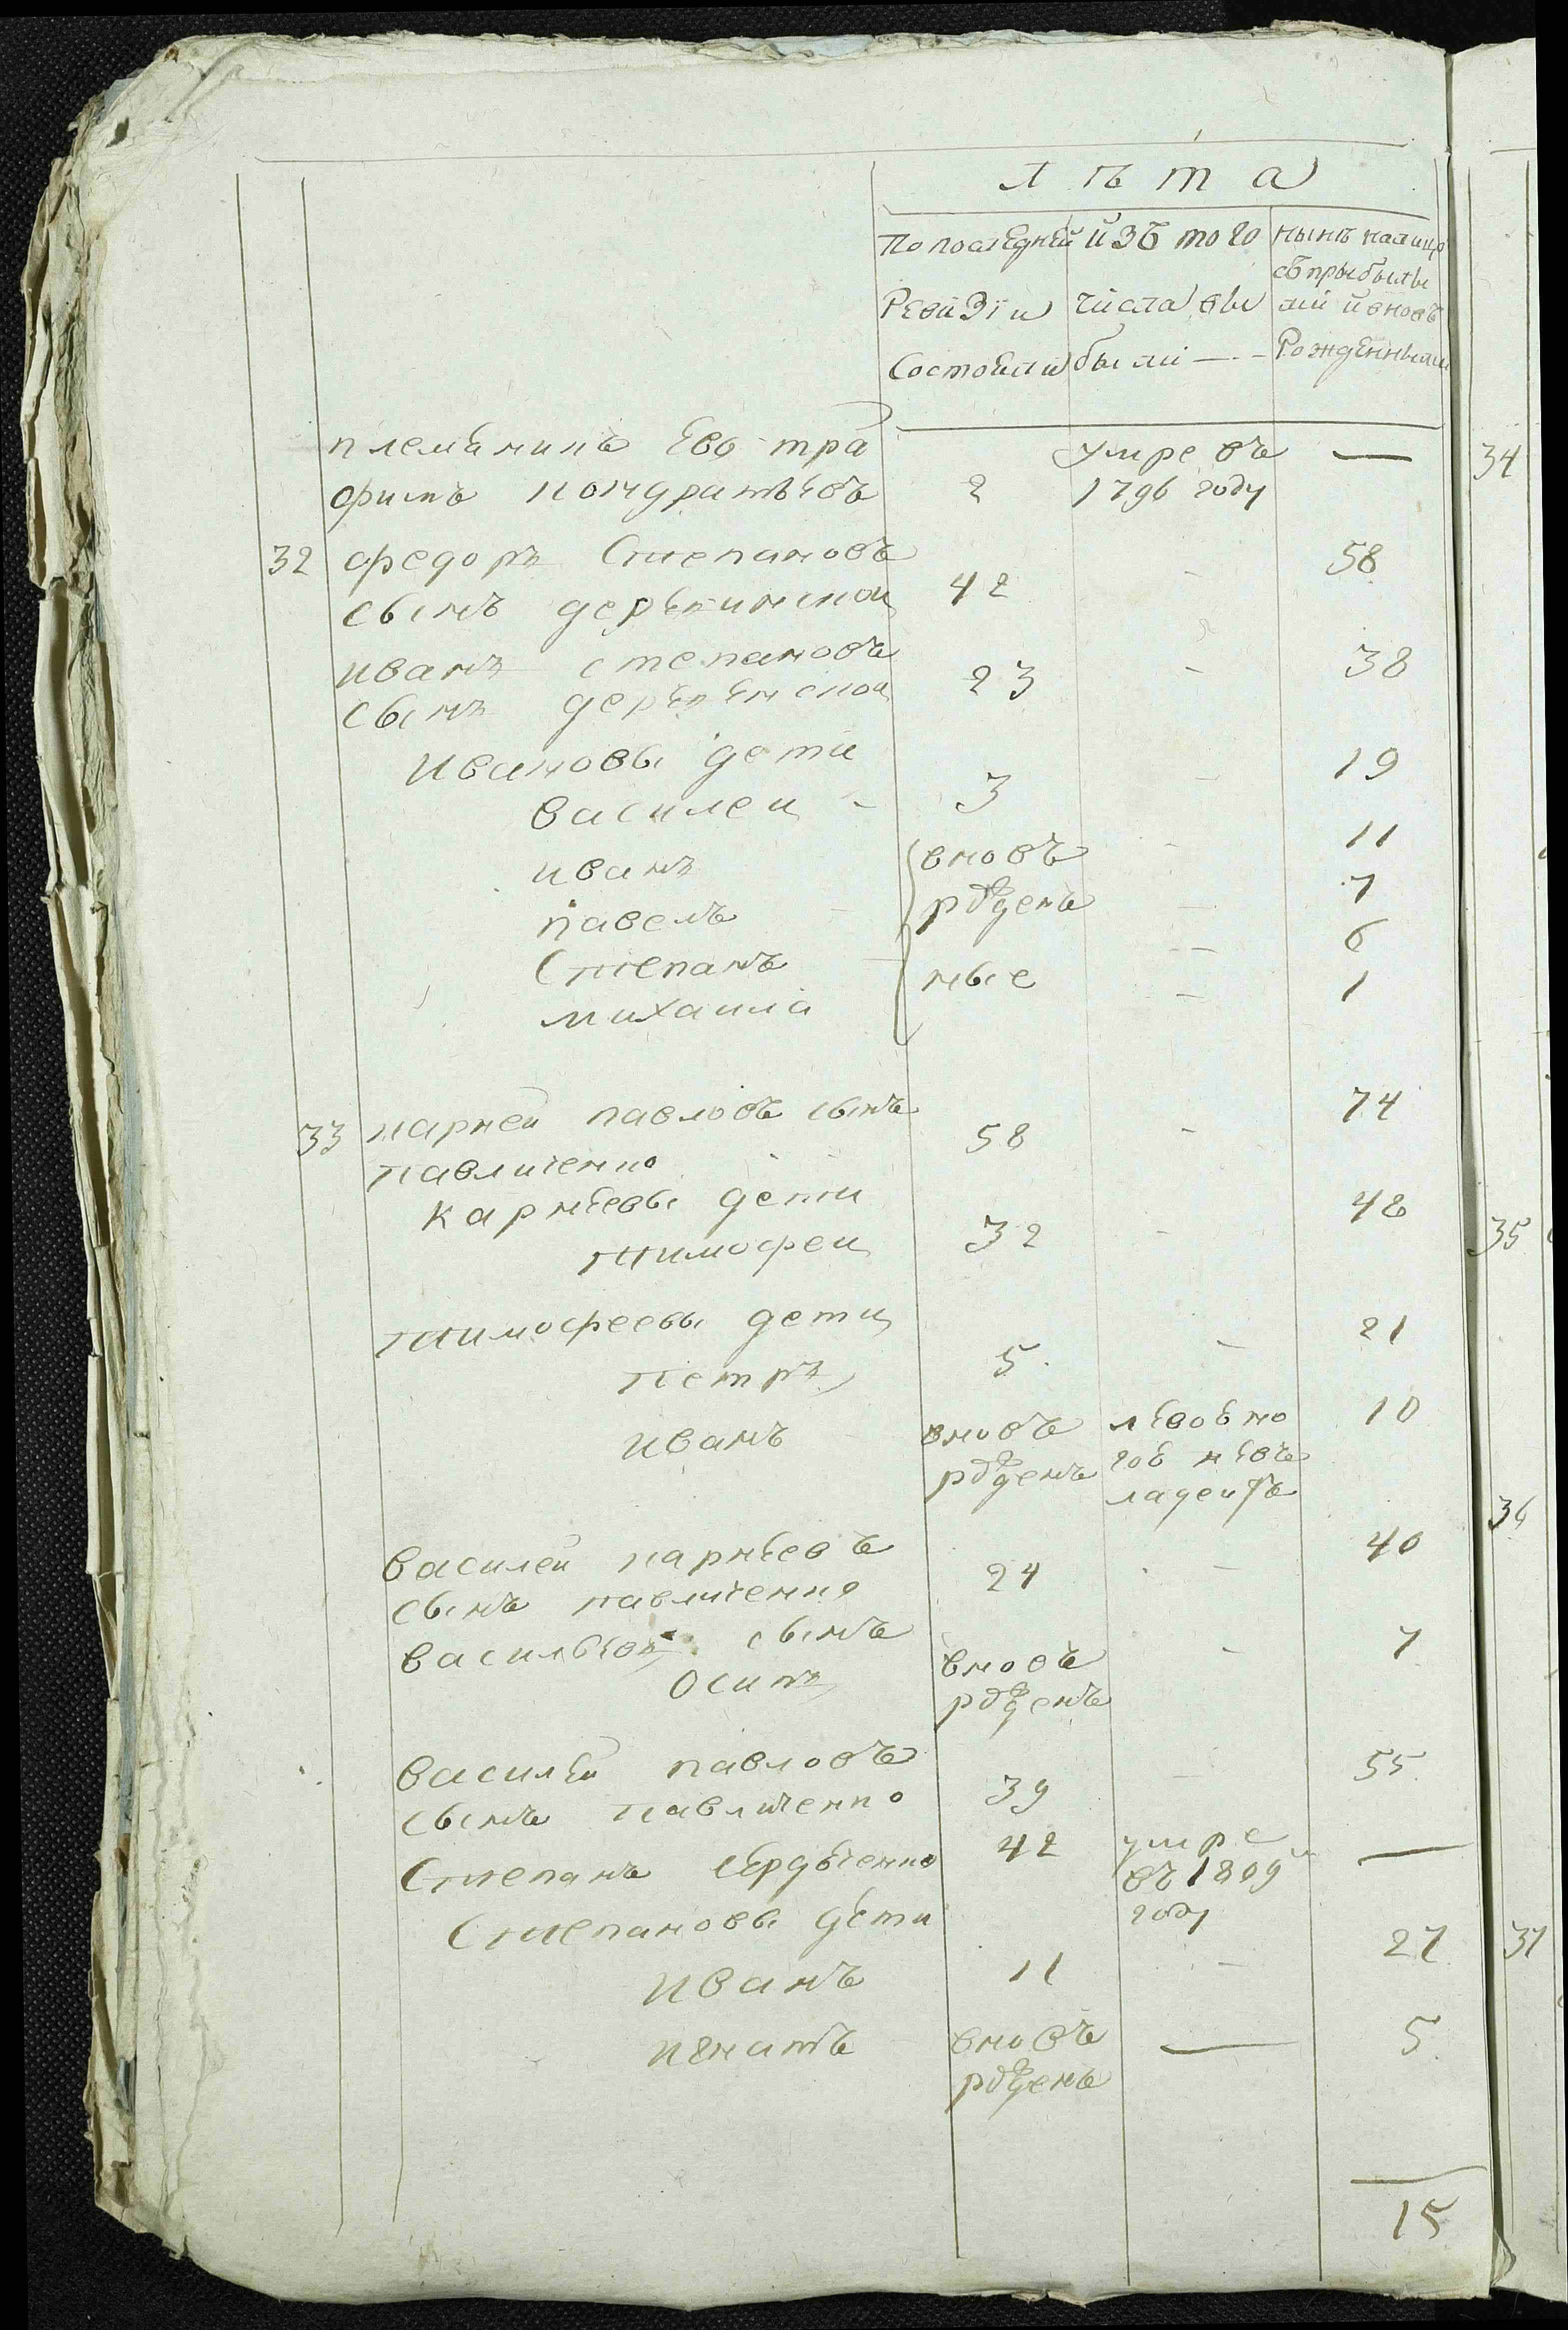 лѣта
По последней изъ того нынѣ налицо
съ прыбылы
Ревизіи числа вы ми и вновь
Состояли были — Рожденными
племеникъ Евстра умре въ —
фимъ кондратьевъ 2 1796 году
32 федоръ Степановъ 58
сынъ 42 -
иванъ степановъ 38
сынъ 23 -
Ивановы дети 19
василеи - 3 -
иванъ вновъ - 11
павелъ рожден - 7
Степанъ - 6
михаила ные - 1
33 карнеи павловъ сынъ 58 - 74
павличенко
Карнеевы дети 48
тимофеи 32 -
тимофеевы дети 21
петръ 5 -
иванъ вновъ левое но 10
рожденъ
василеи карнеевъ 24 - 40
сынъ павличенко
васильевъ сынъ вновъ - 7
Осипъ рожденъ
василеи павловъ 55
сынъ павличенко 39 -
Степанъ Сердыченко 42 умре —
въ 1809
Степановы дети году
иванъ 11 - 27
игнатъ вновъ — 5
рожденъ
15
34
35
36
37